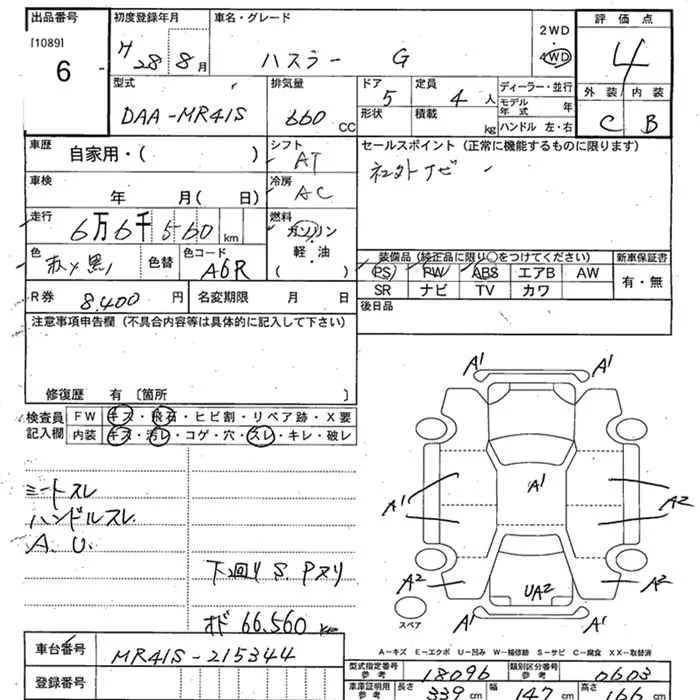 出品番号 初度登録年月 車名・グレード 2WD 評価点
[1089] H 28年 8月 ハスラー G 4WD 4
6
型式 排気量 ドア 定員 ディーラー・並行 外装 内装
DAA-MR41S 660 CC 5 4人 モデル年式 年 C B
形状 積載 kg ハンドル 左・右
車歴 自家用・( ) シフト AT セールスポイント (正常に機能するものに限ります)
車検 年 月( 日) 冷房 AC 社外ナビ
走行 6万6千560km 燃料 ガソリン
軽・油
( ・ )
色 赤×黒 色替 色コード A6R
装備品 (純正品に限り○をつけてください) 新車保証書
PS PW ABS エアB AW 有・無
SR ナビ TV カワ
R券 8,400円 名変期限 月 日 後日品
注意事項申告欄 (不具合内容等は具体的に記入して下さい)
修復歴 有 〔箇所 〕
検査員記入欄 FW キズ・飛石・ヒビ割・リペア跡・X要
内装 キズ・汚レ・コゲ・穴・スレ・キレ・破レ
シートスレ
ハンドルスレ
A.U.
下廻り S. Pヌリ
オド 66,560 km
A1 A1
A1
A1 A2
A2 UA2 A2
A1 A1
スペア
A-キズ E-エクボ U-凹み W-補修跡 S-サビ C-腐食 XX-取替済
車台番号 MR41S-215344
登録番号
型式指定番号参考 18096 類別区分番号参考 0603
車庫証明用参考 長さ 339 cm 幅 147 cm 高さ 166 cm